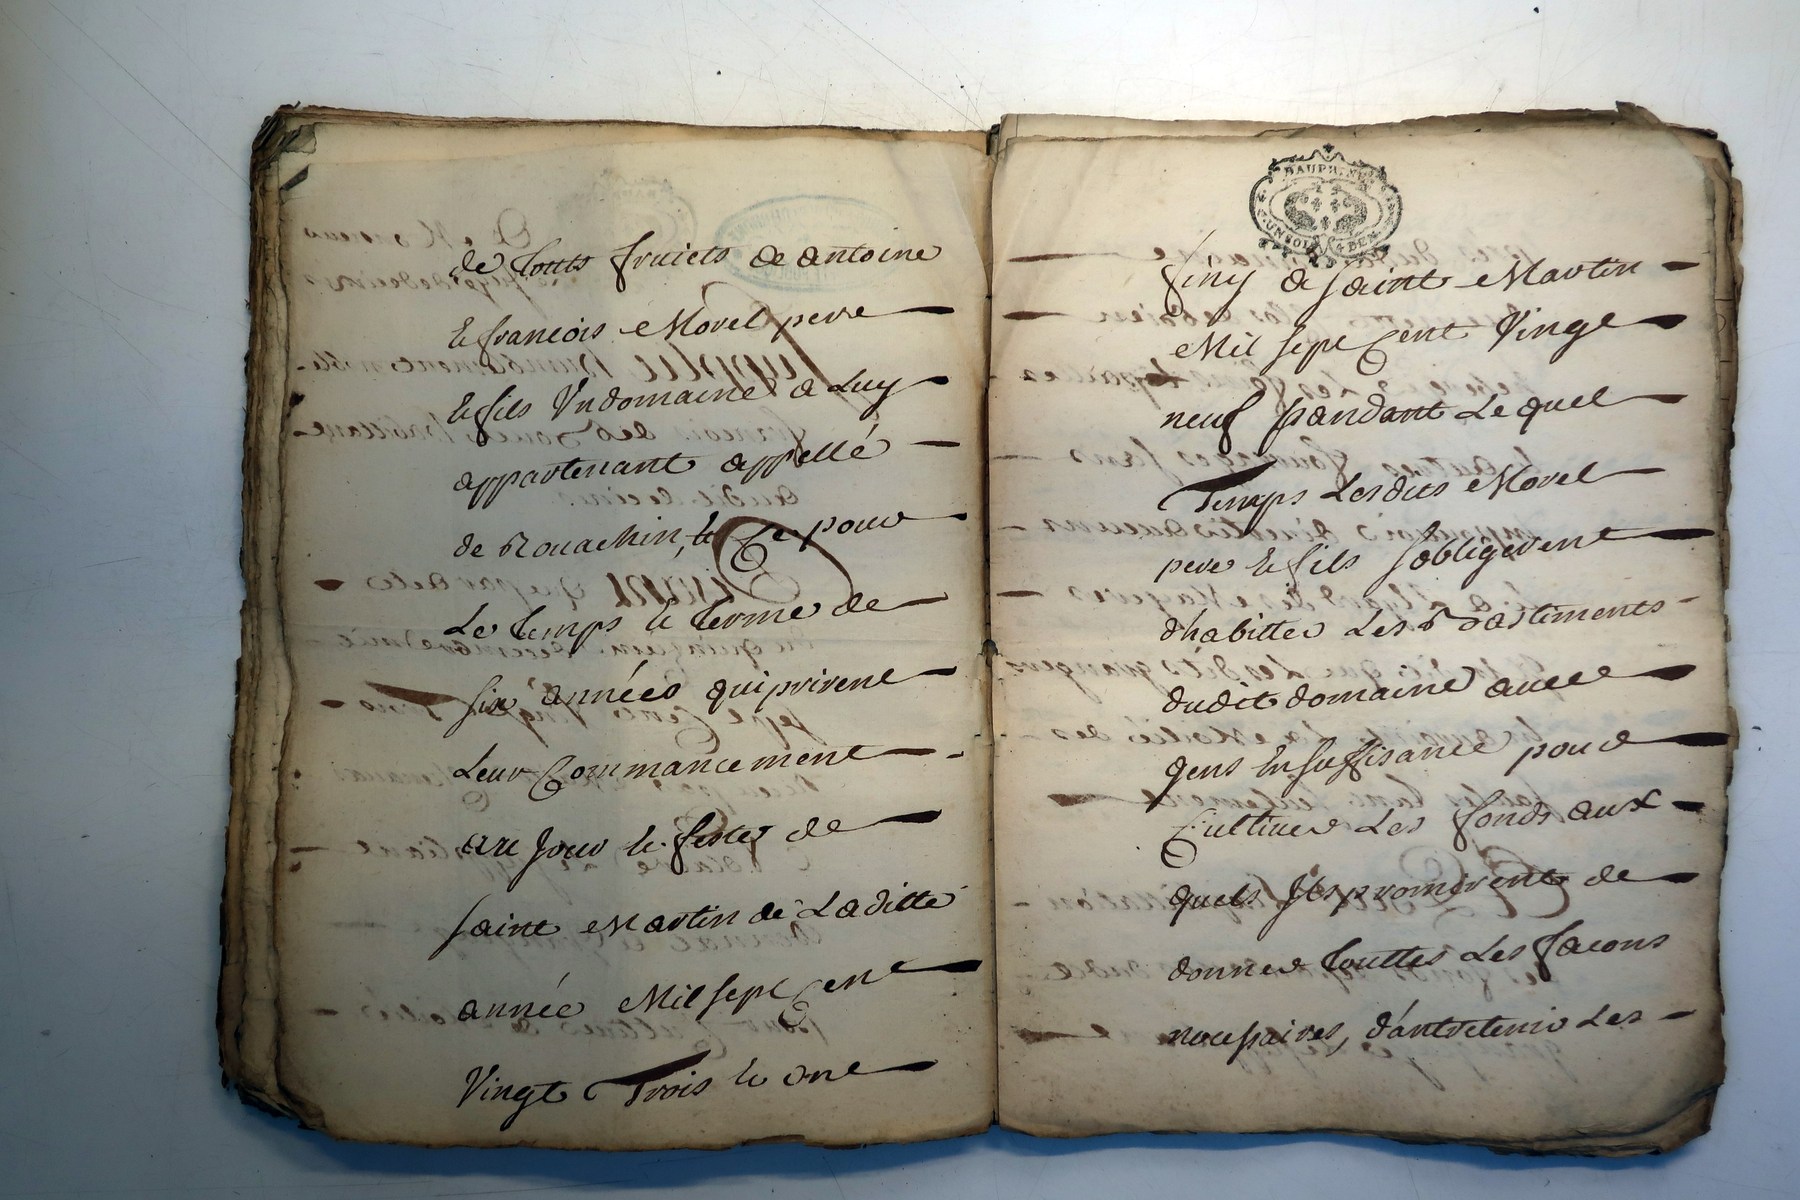 de touts fruicts de antoine
& francois Morel pere
& fils Un domaine a Luy
appartenant appellé
de Rouachin, & Ce pour
Le temps & terme de
six années qui prirent
Leur Commancement
au jour & feste de
saint Martin de Laditte
année Mil sept Cent
Vingt Trois & ont
DAUPHINE
UN SOL 4 DEN
finy a saint Martin
Mil sept Cent Vingt
neuf pandant Le quel
Temps Lesdits Morel
pere & fils sobligerent
dhabitter Les Bastiments
dudit domaine avec
gens En suffisance pour
Cultiver Les fonds aux
quels Ils promirent de
donner touttes Les facons
necessaires, d'antretenir Les